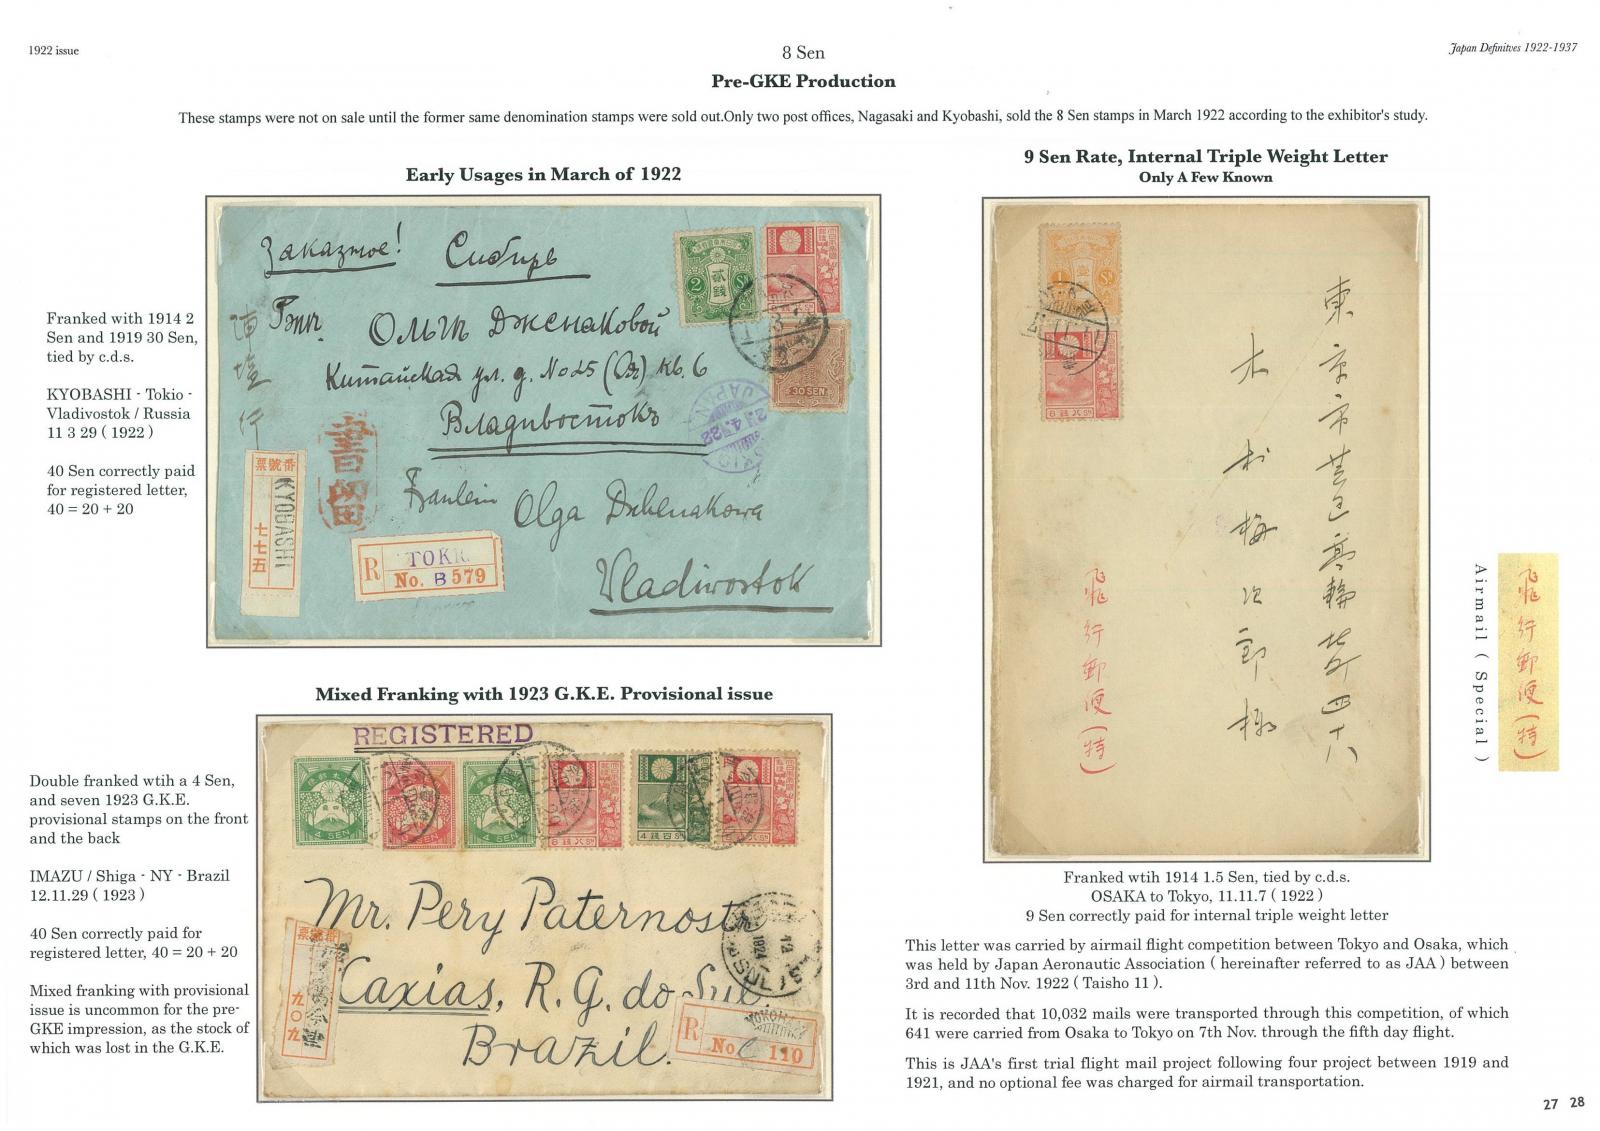 1922 issue
8 Sen
Japan Definitves 1922-1937
Pre-GKE Production
These stamps were not on sale until the former same denomination stamps were sold out.Only two post offices, Nagasaki and Kyobashi, sold the 8 Sen stamps in March 1922 according to the exhibitor's study.
Early Usages in March of 1922
Franked with 1914 2
Sen and 1919 30 Sen,
tied by c.d.s.
KYOBASHI - Tokio -
Vladivostok / Russia
11 3 29 ( 1922 )
40 Sen correctly paid
for registered letter,
40 = 20 + 20
Заказное! Сибирь
Ольги Дженаковой
Китайская ул. д. No 25 кв. 6
Владивостокъ
Fraulein Olga Dzhenakowa
Vladiwostok
2 貳錢 Sn
30 SEN
JAPAN
書留
票號番
KYOBASHI
七七五
R TOKIO
No. B 579
Mixed Franking with 1923 G.K.E. Provisional issue
Double franked wtih a 4 Sen,
and seven 1923 G.K.E.
provisional stamps on the front
and the back
IMAZU / Shiga - NY - Brazil
12.11.29 ( 1923 )
40 Sen correctly paid for
registered letter, 40 = 20 + 20
Mixed franking with provisional
issue is uncommon for the pre-
GKE impression, as the stock of
which was lost in the G.K.E.
REGISTERED
4 SEN
4 SEN
8 錢八 Sn
4 錢四 Sn
Mr. Pery Paternostr
Caxias, R. G. do Sul.
Brazil.
票號番
九〇九
R
No 110
9 Sen Rate, Internal Triple Weight Letter
Only A Few Known
8 錢八 Sn
東京市芝區高輪北町四十八
木村梅次郎様
飛行郵便(特)
Airmail ( Special )
飛行郵便(特)
Franked wtih 1914 1.5 Sen, tied by c.d.s.
OSAKA to Tokyo, 11.11.7 ( 1922 )
9 Sen correctly paid for internal triple weight letter
This letter was carried by airmail flight competition between Tokyo and Osaka, which
was held by Japan Aeronautic Association ( hereinafter referred to as JAA ) between
3rd and 11th Nov. 1922 ( Taisho 11 ).
It is recorded that 10,032 mails were transported through this competition, of which
641 were carried from Osaka to Tokyo on 7th Nov. through the fifth day flight.
This is JAA's first trial flight mail project following four project between 1919 and
1921, and no optional fee was charged for airmail transportation.
27 28